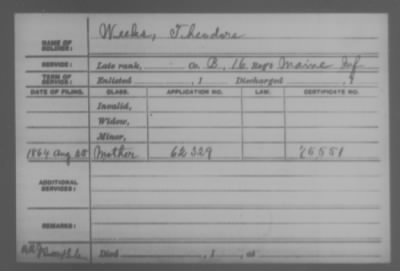 NAME OF SOLDIER: Weeks, Theodore
SERVICE: Late rank, Co. B, 16 Reg't Maine Inf
TERM OF SERVICE: Enlisted , 1 Discharged , 1
DATE OF FILING. CLASS. APPLICATION NO. LAW. CERTIFICATE NO.
Invalid,
Widow,
Minor,
1864 Aug 25 Mother 62329 75551
ADDITIONAL SERVICES:
REMARKS:
Died , 1 , at